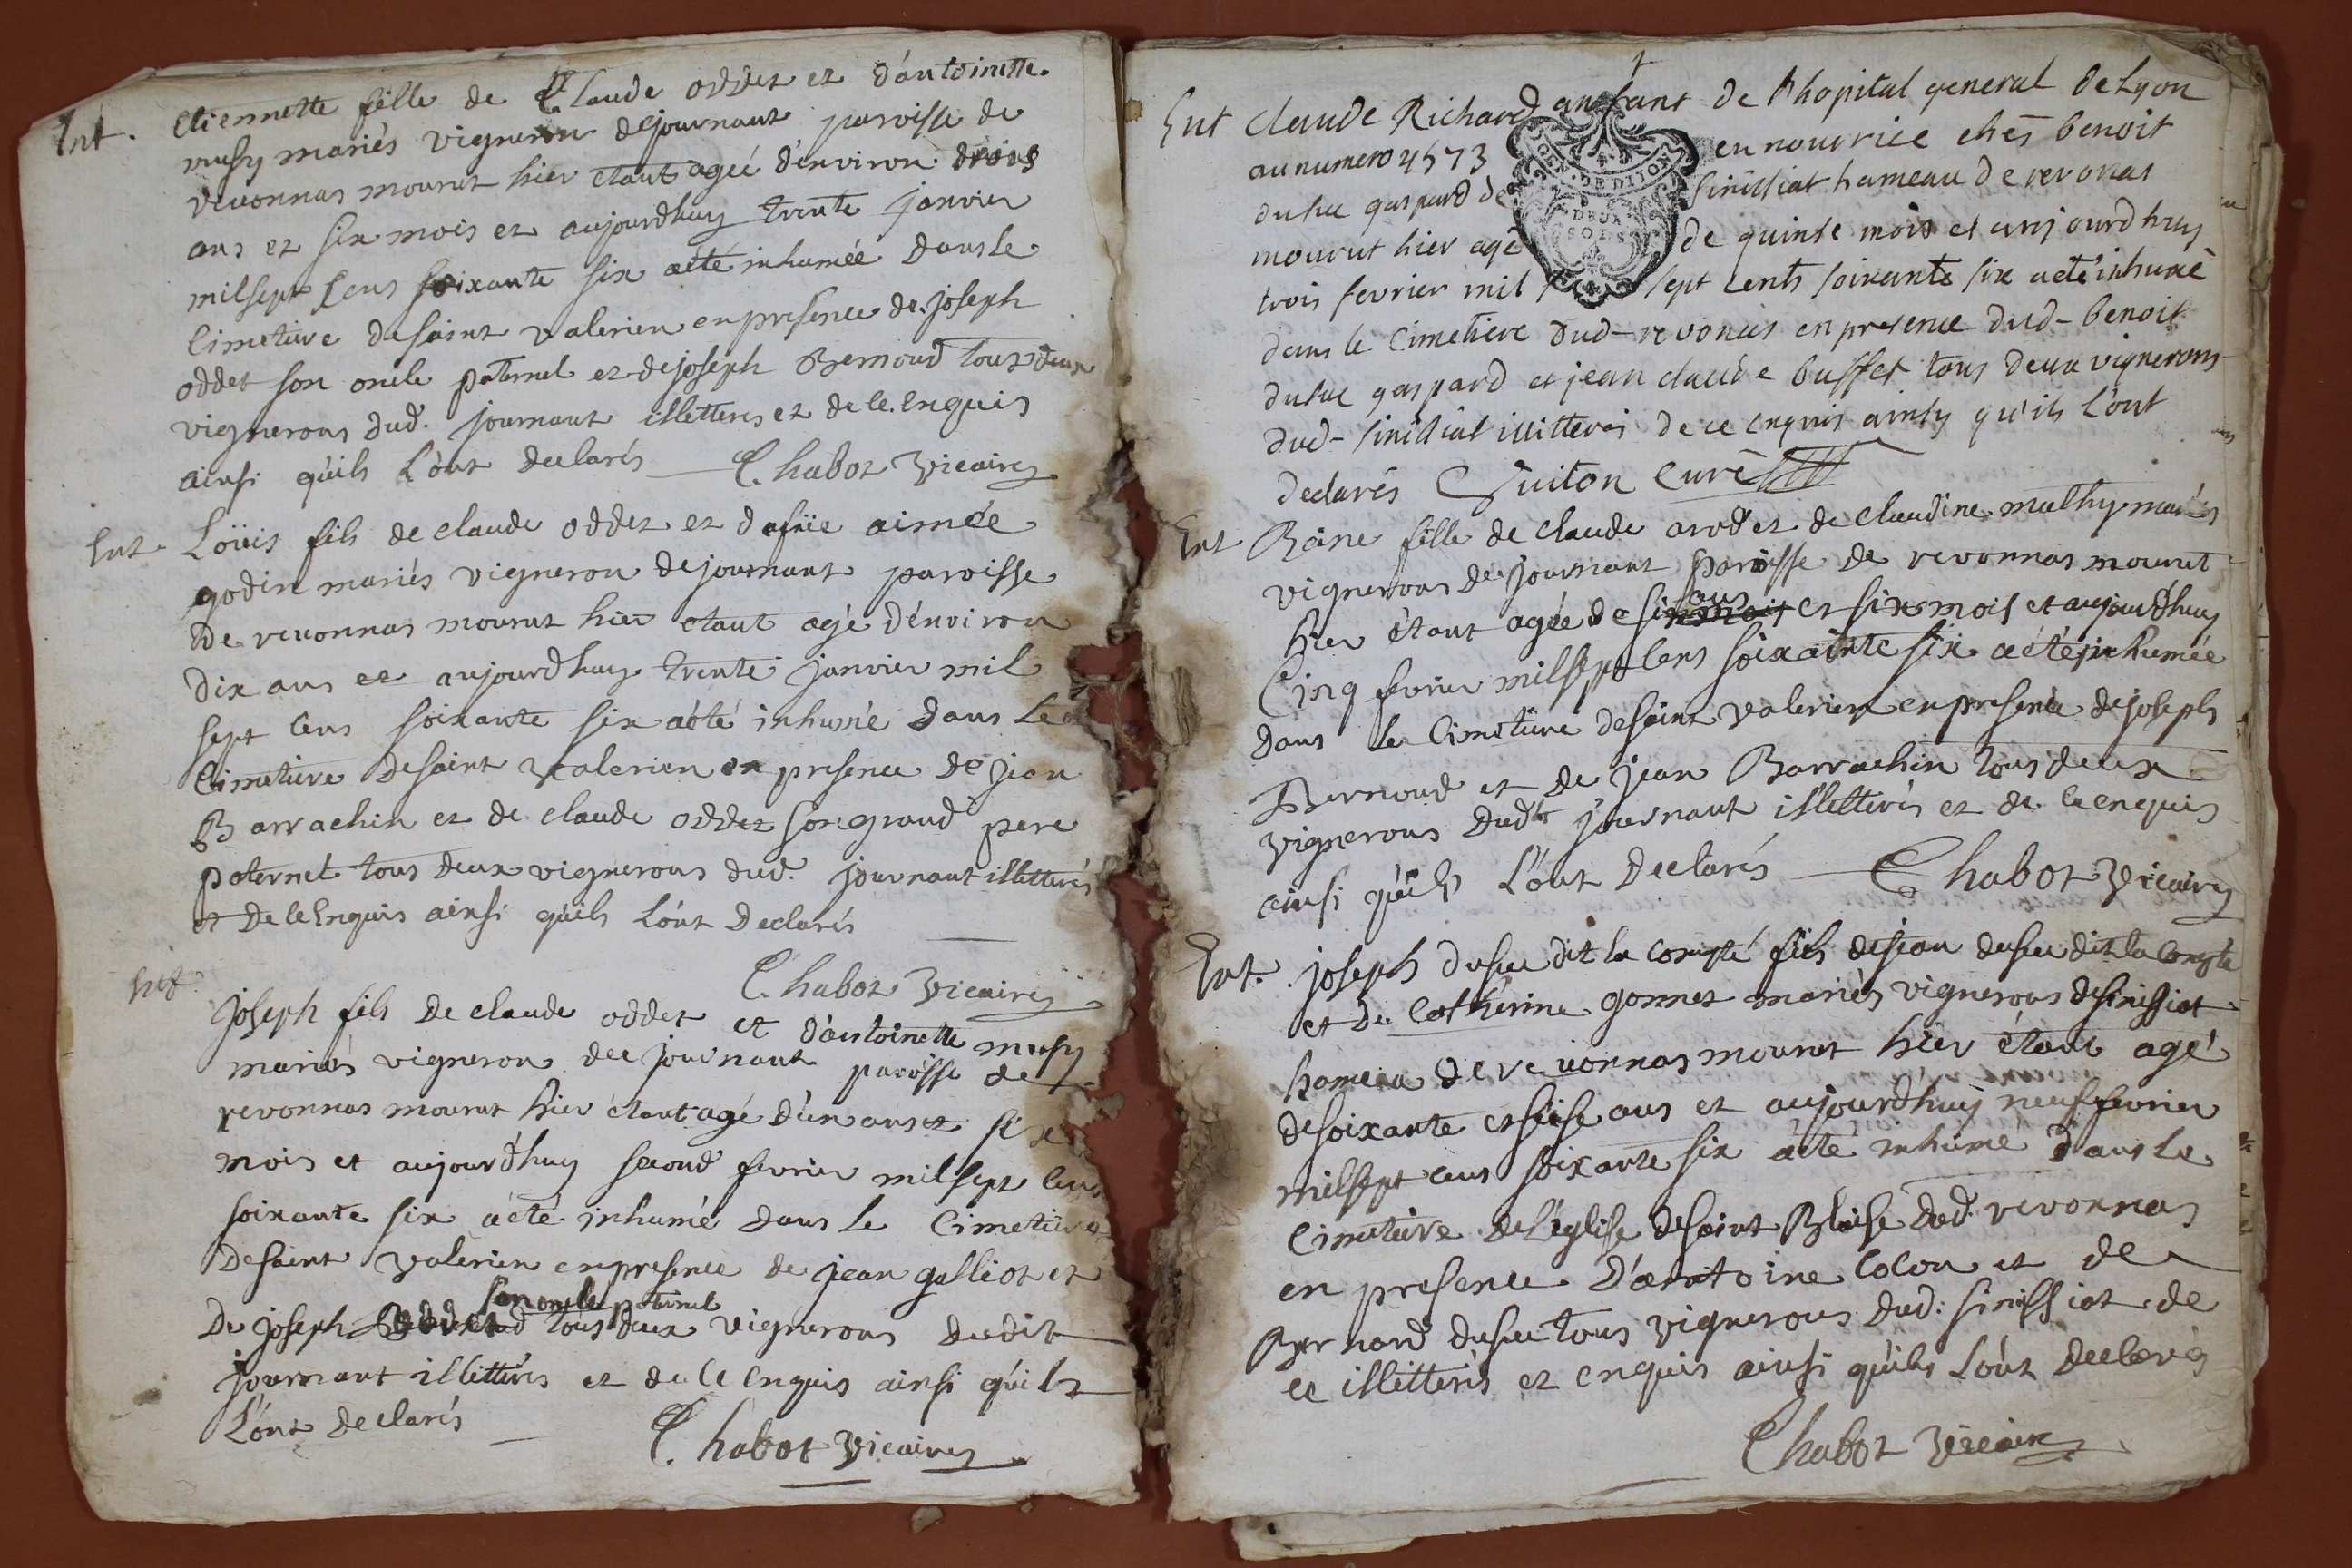 Ent.
etiennette fille de Claude oddet et d'antoinette
musy mariés vigneron dejournant paroisse de
revonnas mourut hier etant agée d'environ trois
ans et six mois et aujourdhuy trente janvier
milsept cens soixante six aété inhumée dans le
Cimetiere desaint valerien enpresence de joseph
oddet son oncle paternel et dejoseph Bernoud tous deux
vignerons dud. journant illetterés et de ce Enquis
ainsi qu'ils L'ont declarés Chabot vicaire
Ent. Loüis fils de claude oddet et d aimée
godin mariés vigneron dejournant paroisse
de revonnas mourut hier etant agé d'environ
dix ans et aujourdhuy trente janvier mil
sept Cens soixante six aété inhumé dans Le
Cimetiere desaint valerien en presence de jean
Barrachin et de claude oddet son grand pere
paternel tous deux vignerons dud. journant illetterés
et de ce Enquis ainsi qu'ils L'ont declarés
Chabot vicaire
Ent.
joseph fils de claude oddet et d'antoinette musy
mariés vigneron de journant paroisse de
revonnas mourut hier étant agé d'un an et six
mois et aujourdhuy second fevrier milsept Cens
soixante six aété inhumé dans le Cimetiere
desaint valerien enpresence de jean galliot et
son oncle paternel
De joseph oddet tous deux vignerons dudit
journant illitterés et de ce Enquis ainsi qu'ils
L'ont declarés
Chabot vicaire
Ent Claude Richard anfant de l'hopital general de Lyon
au numero 4573 en nourrice chés benoit
dufuc gaspard de sinissiat hameau de revonas
mourut hier agé de quinse mois et aujourdhuy
trois fevrier mil sept cents soixante six aeté inhumé
dans le Cimetiere dud- revonas en presence dud- benoit
dufuc gaspard et jean claude buffet tous deux vignerons
dud- sinissiat illitterés de ce enquis ainsy qu'ils l'ont
declarés Guiton Curé
Ent Reine fille de claude arod et de claudine mathy mariés
vignerons de journant paroisse de revonnas mourut
ans
hier étant agée de six mois et six mois et aujourdhuy
Cinq fevrier milsept Cens soixainte six aété inhumée
dans le Cimetiere desaint valerien enpresence dejoseph
Bernoud et de jean Barrachin tous deux
vignerons dudt journant illetterés et de ce enquis
ainsi qu'ils L'ont declarés Chabot vicaire
Ent. joseph dufuc dit la comté fils dejean dufuc dit la Comté
et de Cathérine gonnet mariés vignerons desinissiat
hameau de revonnas mourut hier étant agé
desoixante et seise ans et aujourd'huy neuf fevrier
milsept cens soixante six aété inhumé dans le
Cimetiere de L'église desaint Blaise dud. revonnas
en presence d'antoine Colon et de
Bernard dufuc tous vignerons dud. sinissiat de
ce illitterés et enquis ainsi qu'ils L'ont declarés
Chabot vicaire
OEN. DE DIJON
DEUX
SOLS